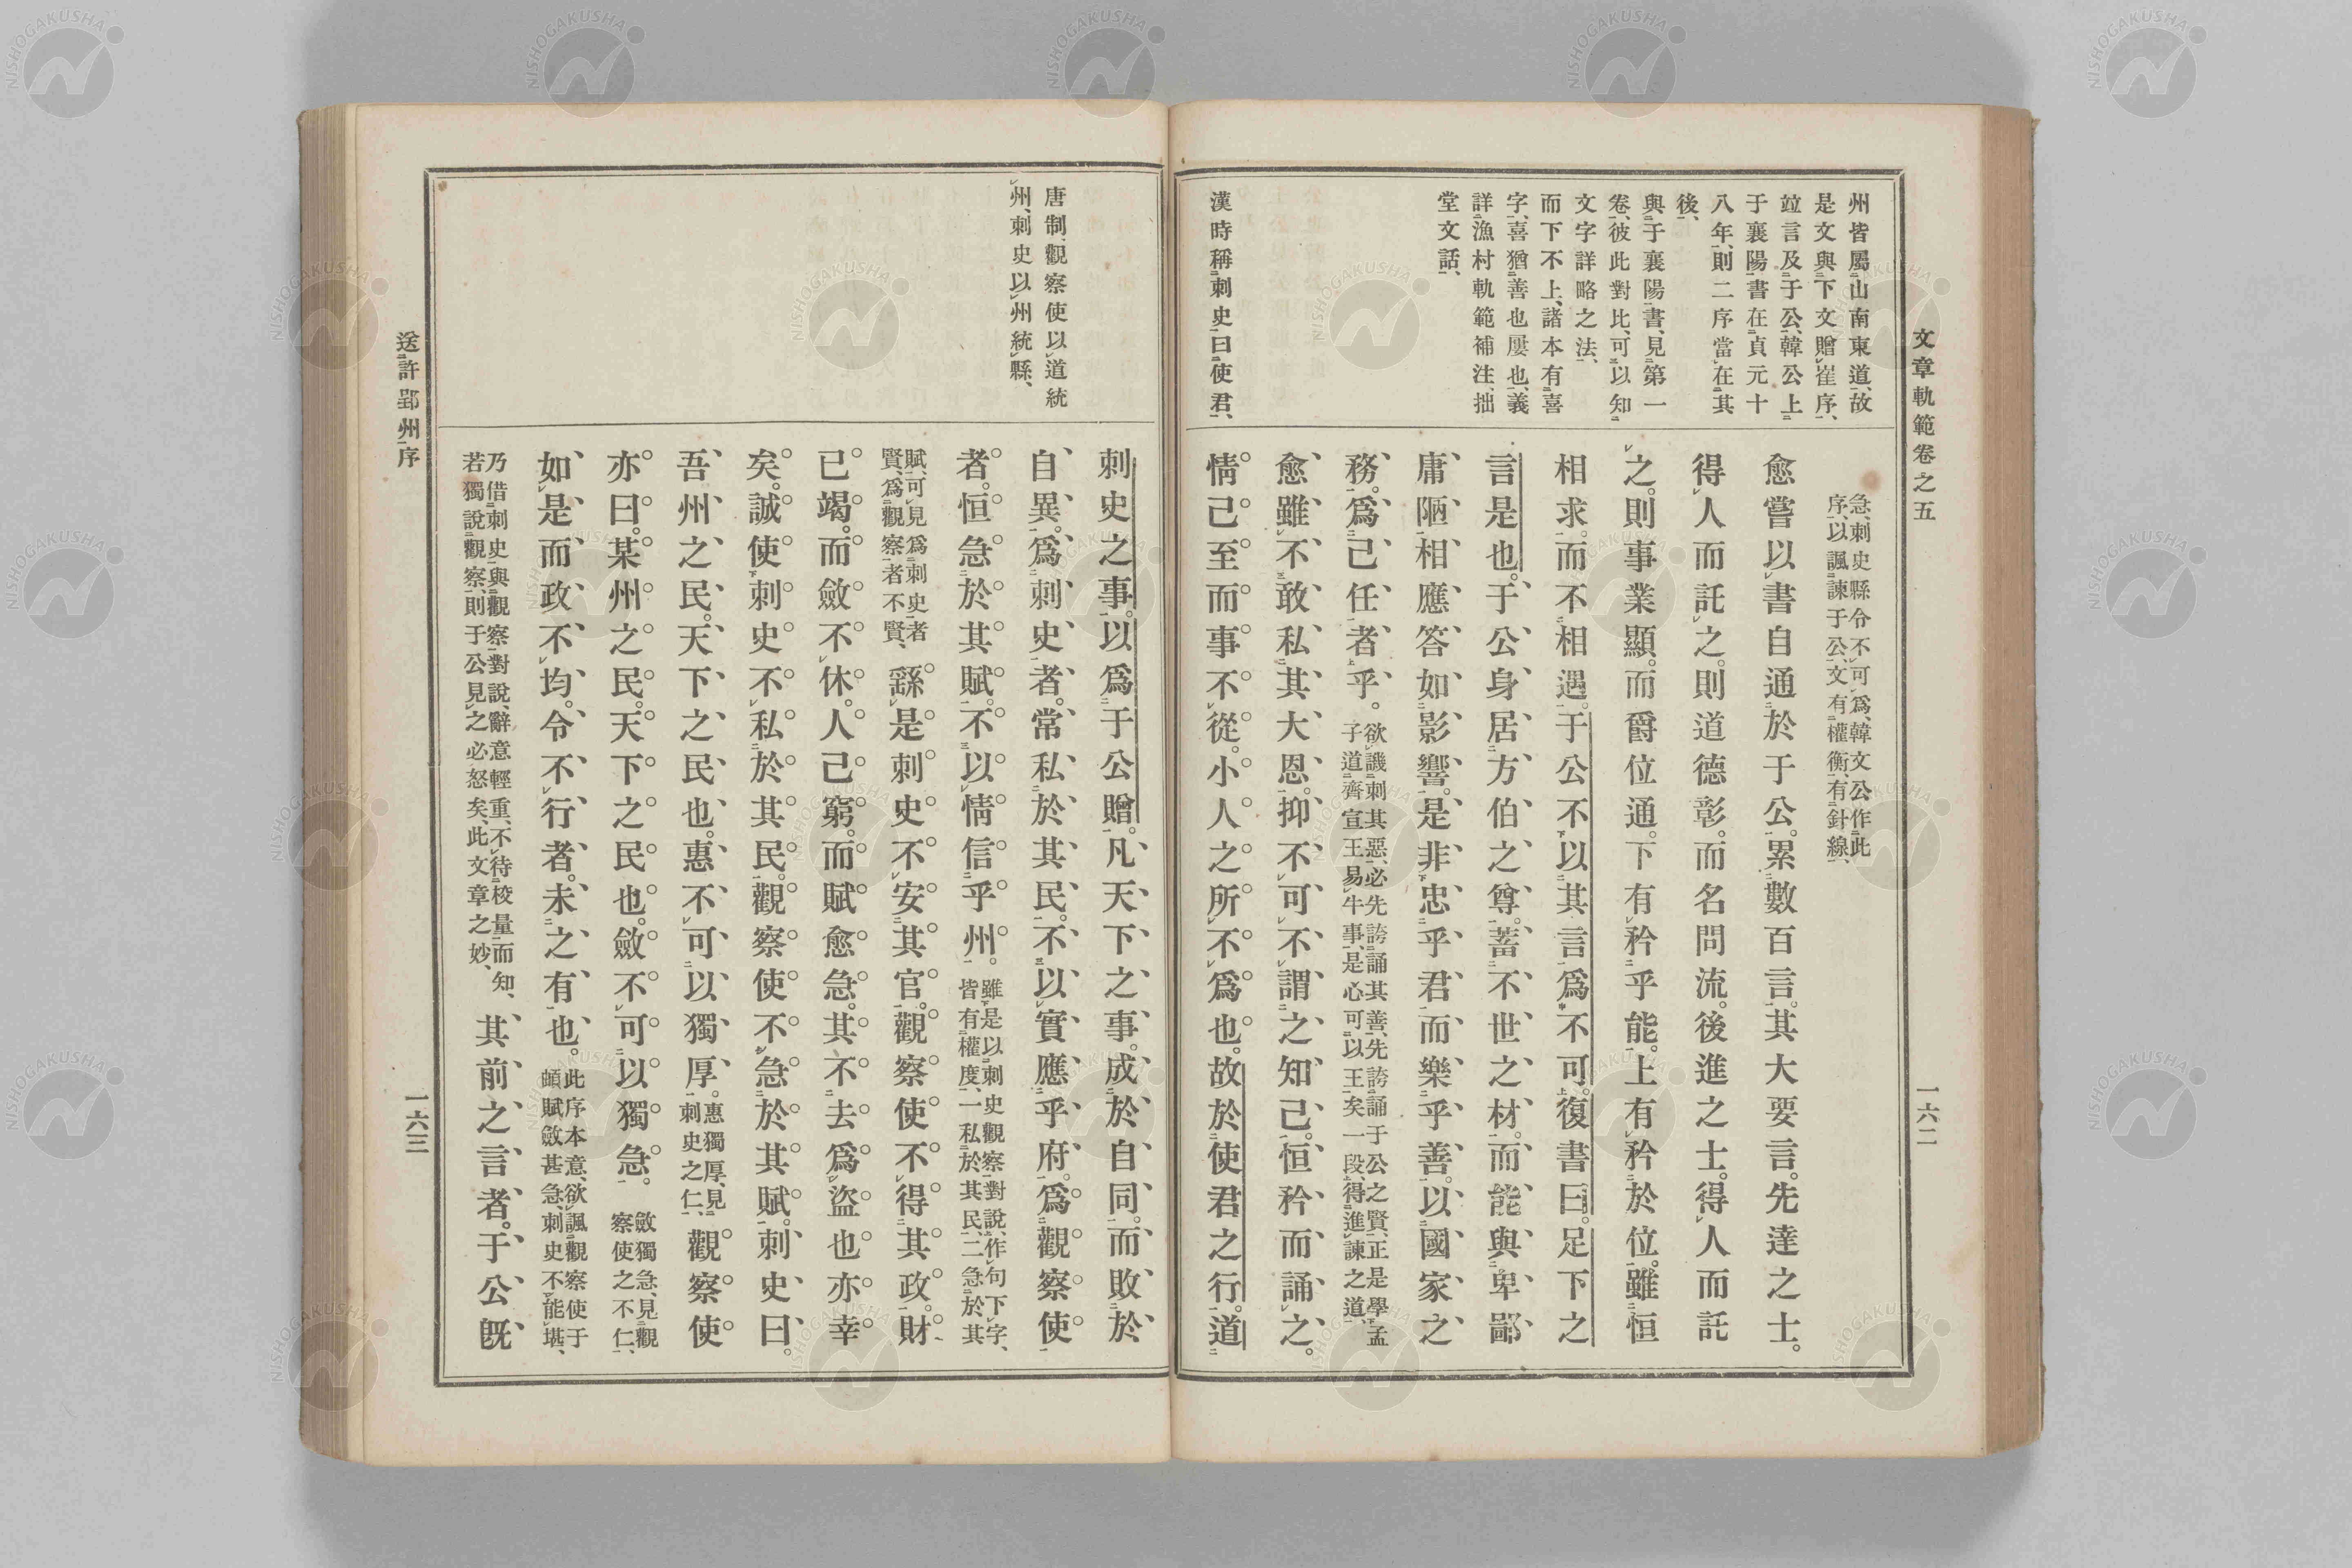 文章軌範卷之五
一六二
州皆屬山南東道、故
是文與下文贈崔序、
竝言及于公、韓公上
于襄陽書在貞元十
八年、則二序當在其
後、
與于襄陽書、見第一
卷、彼此對比、可以知
文字詳略之法、
而下不上、諸本有喜
字、喜猶善也屢也、義
詳漁村軌範補注、拙
堂文話、
漢時稱刺史曰使君、
急、刺史縣令不可爲、韓文公作此
序、以諷諫于公、文有權衡、有針線、
愈嘗以書自通於于公。累數百言。其大要言。先達之士。
得人而託之。則道德彰。而名問流。後進之士。得人而託
之。則事業顯。而爵位通。下有矜乎能。上有矜於位。雖恒
相求。而不相遇。于公不以其言爲不可。復書曰。足下之
言是也。于公身居方伯之尊。蓄不世之材。而能與卑鄙
庸陋相應答如影響。是非忠乎君而樂乎善。以國家之
務。爲己任者乎。欲譏刺其惡、必先誇誦其善、先誇誦于公之賢、正是學孟
子道齊宣王易牛事、是心可以王矣一段、得進諫之道、
愈雖不敢私其大恩。抑不可不謂之知己。恒矜而誦之。
情己至而事不從。小人之所不爲也。故於使君之行。道
刺史之事。以爲于公贈。凡天下之事。成於自同。而敗於
自異。爲刺史者。常私於其民。不以實應乎府。爲觀察使
者。恒急於其賦。不以情信乎州。雖是以刺史觀察對說、作句下字、
皆有權度、一私於其民、二急於其
賦、可見爲刺史者
賢、爲觀察者不賢、繇是刺史不安其官。觀察使不得其政。財
已竭。而斂不休。人已窮。而賦愈急。其不去爲盜也亦幸
矣。誠使刺史不私於其民。觀察使不急於其賦。刺史曰。
吾州之民。天下之民也。惠不可以獨厚。惠獨厚、見
刺史之仁、觀察使
亦曰。某州之民。天下之民也。斂不可以獨急。斂獨急、見觀
察使之不仁、
如是而政不均。令不行者。未之有也。此序本意、欲諷觀察使于
頔賦斂甚急、刺史不能堪、
乃借刺史與觀察對說、辭意輕重、不待校量而知、
若獨說觀察、則于公見之必怒矣、此文章之妙、其前之言者。于公既
唐制、觀察使以道統
州、刺史以州統縣、
送許郢州序
一六三